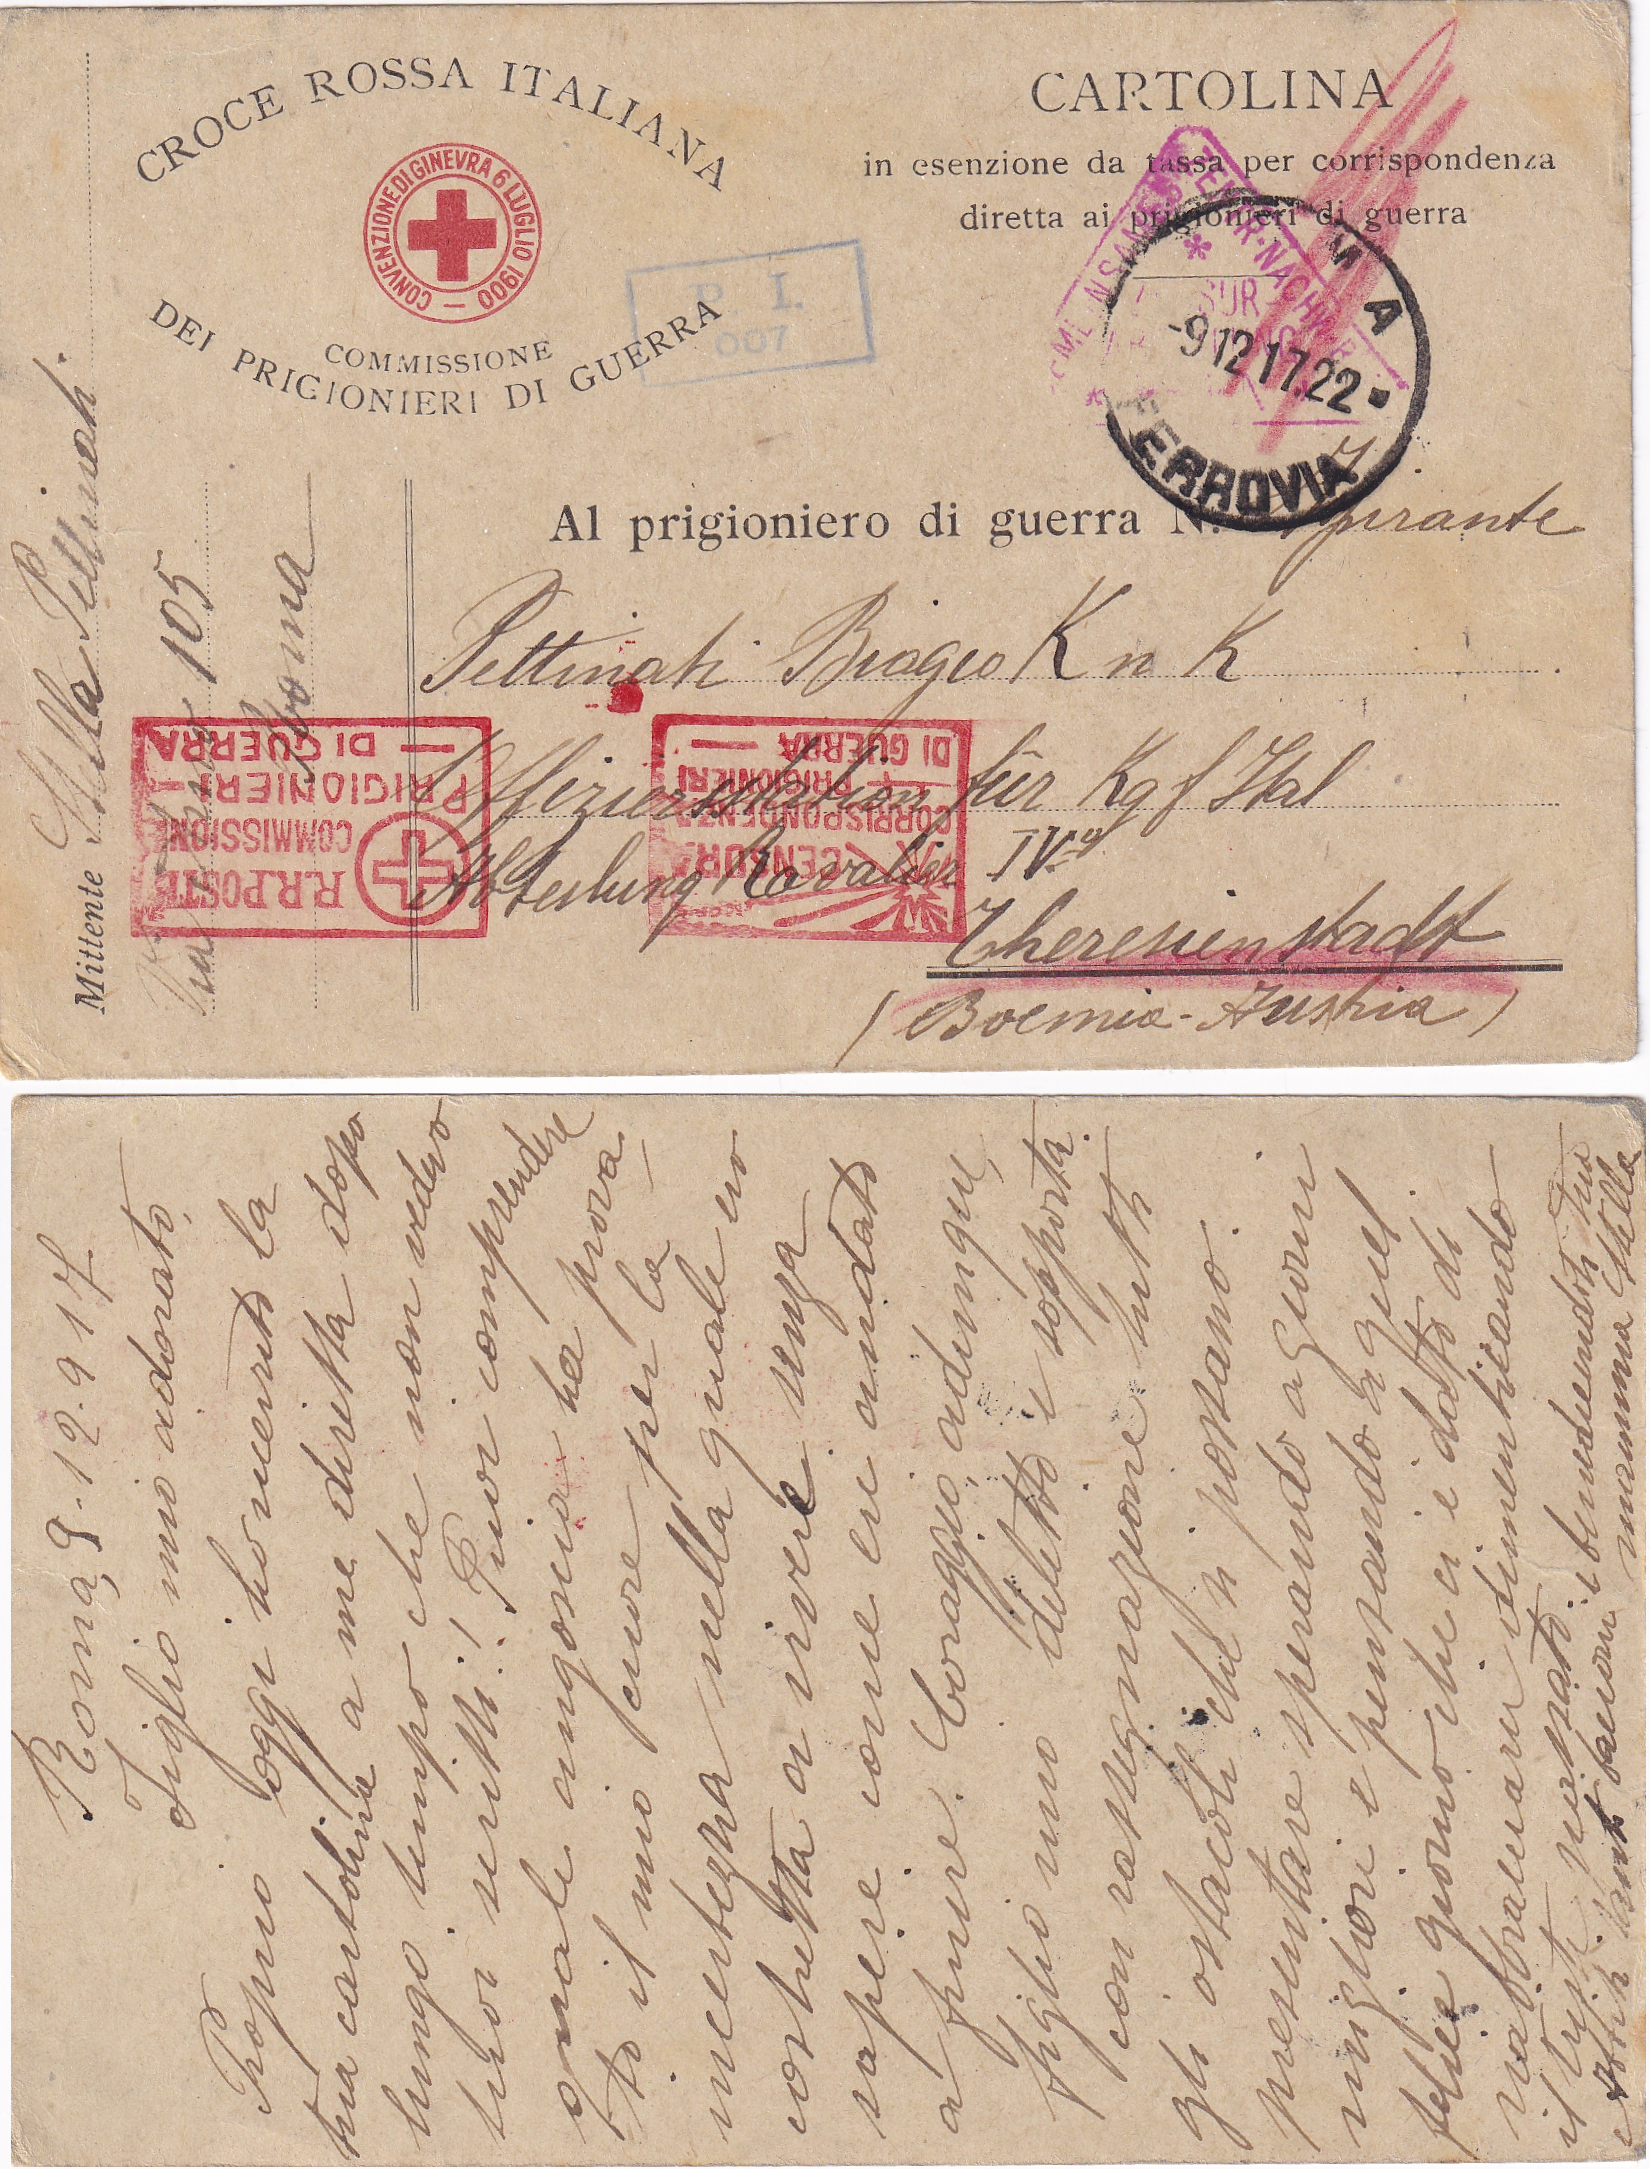 CROCE ROSSA ITALIANA
CONVENZIONE DI GINEVRA 6 LUGLIO 1900
COMMISSIONE
DEI PRIGIONIERI DI GUERRA
CARTOLINA
in esenzione da tassa per corrispondenza
diretta ai prigionieri di guerra
P. I.
007
-9 12 17.22
FERROVIA
Al prigioniero di guerra N. Aspirante
Pettinati Biagio K u K
Offizierstation für Kgf Ital
Abteilung Kavalier IVo
Theresienstadt
(Boemia-Austria)
Mittente Stella Pettinati
Via 105
Roma
R.R. POSTE
COMMISSIONE
PRIGIONIERI
DI GUERRA
CENSURA
CORRISPONDENZA
PRIGIONIERI
DI GUERRA
Roma, 9-12-917
Figlio mio adorato,
Proprio oggi ho ricevuto la
tua cartolina a me diretta dopo
lungo tempo che non vedevo
tuoi scritti! Puoi comprendere
quale angoscia ha prova
to il mio cuore per la
incertezza nella quale ero
costretta a vivere senza
sapere come eri andato
a finire. Coraggio, adunque,
figlio mio diletto e sopporta
con rassegnazione tutti
gli ostacoli che si possano
presentare sperando a giorni
migliori e pensando a quel
felice giorno che ci è dato di
riabbracciarci dimenticando
il triste passato. benedicendoti tua
e tanti bacioni mamma Stella